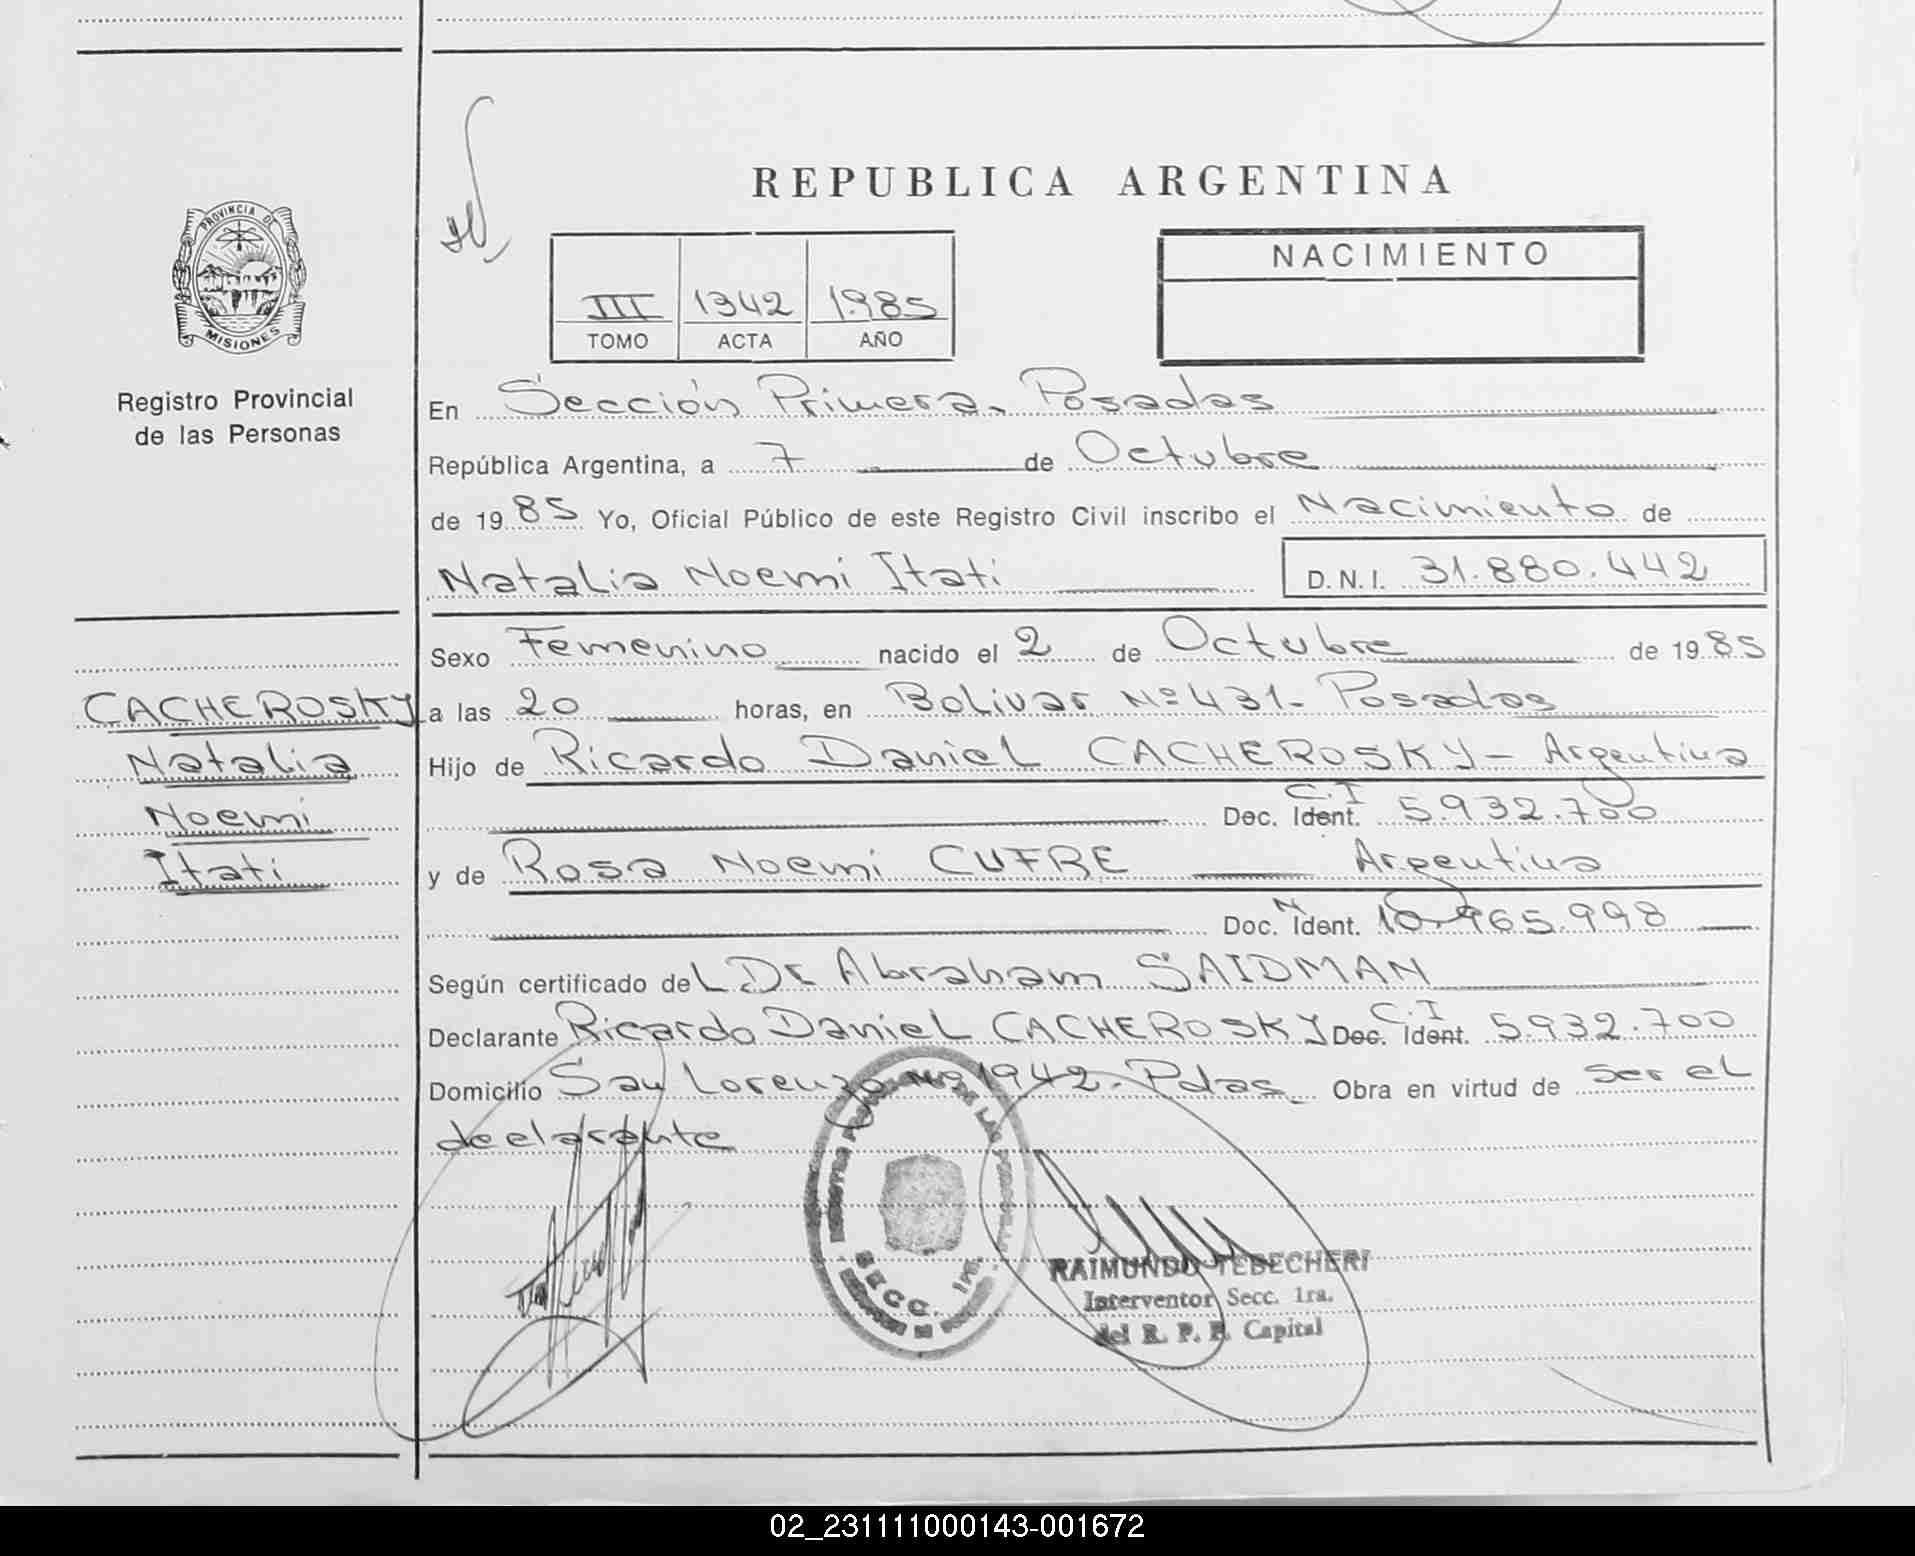 REPUBLICA ARGENTINA
PROVINCIA DE
MISIONES
Registro Provincial
de las Personas
III 1342 1985
TOMO ACTA AÑO
NACIMIENTO
En Sección Primera, Posadas
República Argentina, a 7 de Octubre
de 1985 Yo, Oficial Público de este Registro Civil inscribo el Nacimiento de
Natalia Noemi Itati D.N.I. 31.880.442
Sexo Femenino nacido el 2 de Octubre de 1985
CACHEROSKY
Natalia
Noemi
Itati
a las 20 horas, en Bolivar Nº 431- Posadas
Hijo de Ricardo Daniel CACHEROSKY - Argentina
Doc. Ident. C.I 5.932.700
y de Rosa Noemi CUFRE Argentina
Doc. N Ident. 10.965.998
Según certificado del Dr Abraham SAIDMAN
Declarante Ricardo Daniel CACHEROSKY Doc. Ident. C.I 5932.700
Domicilio San Lorenzo Nº 1942- Pdas Obra en virtud de ser el
declarante
DE LAS
SECC. 1ra.
RAIMUNDO TEBECHERI
Interventor Secc. 1ra.
del R. P. P. Capital
02_231111000143-001672